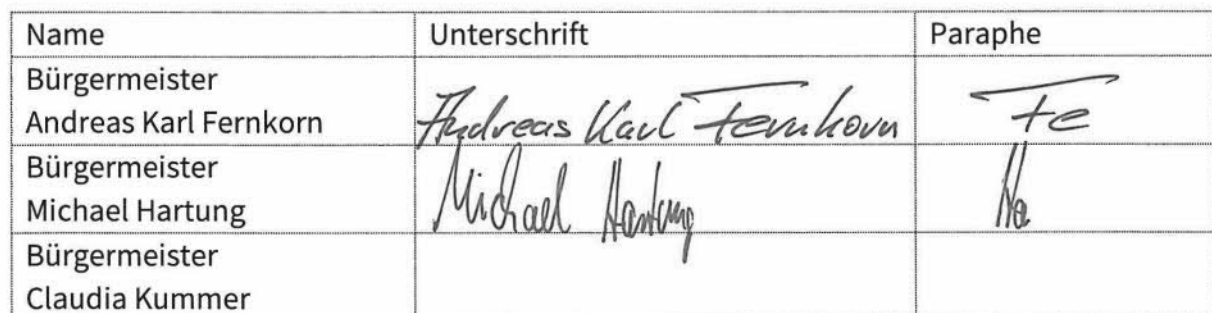 Name Unterschrift Paraphe
Bürgermeister
Andreas Karl Fernkorn Andreas Karl Fernkorn Fe
Bürgermeister
Michael Hartung Michael Hartung Ha
Bürgermeister
Claudia Kummer